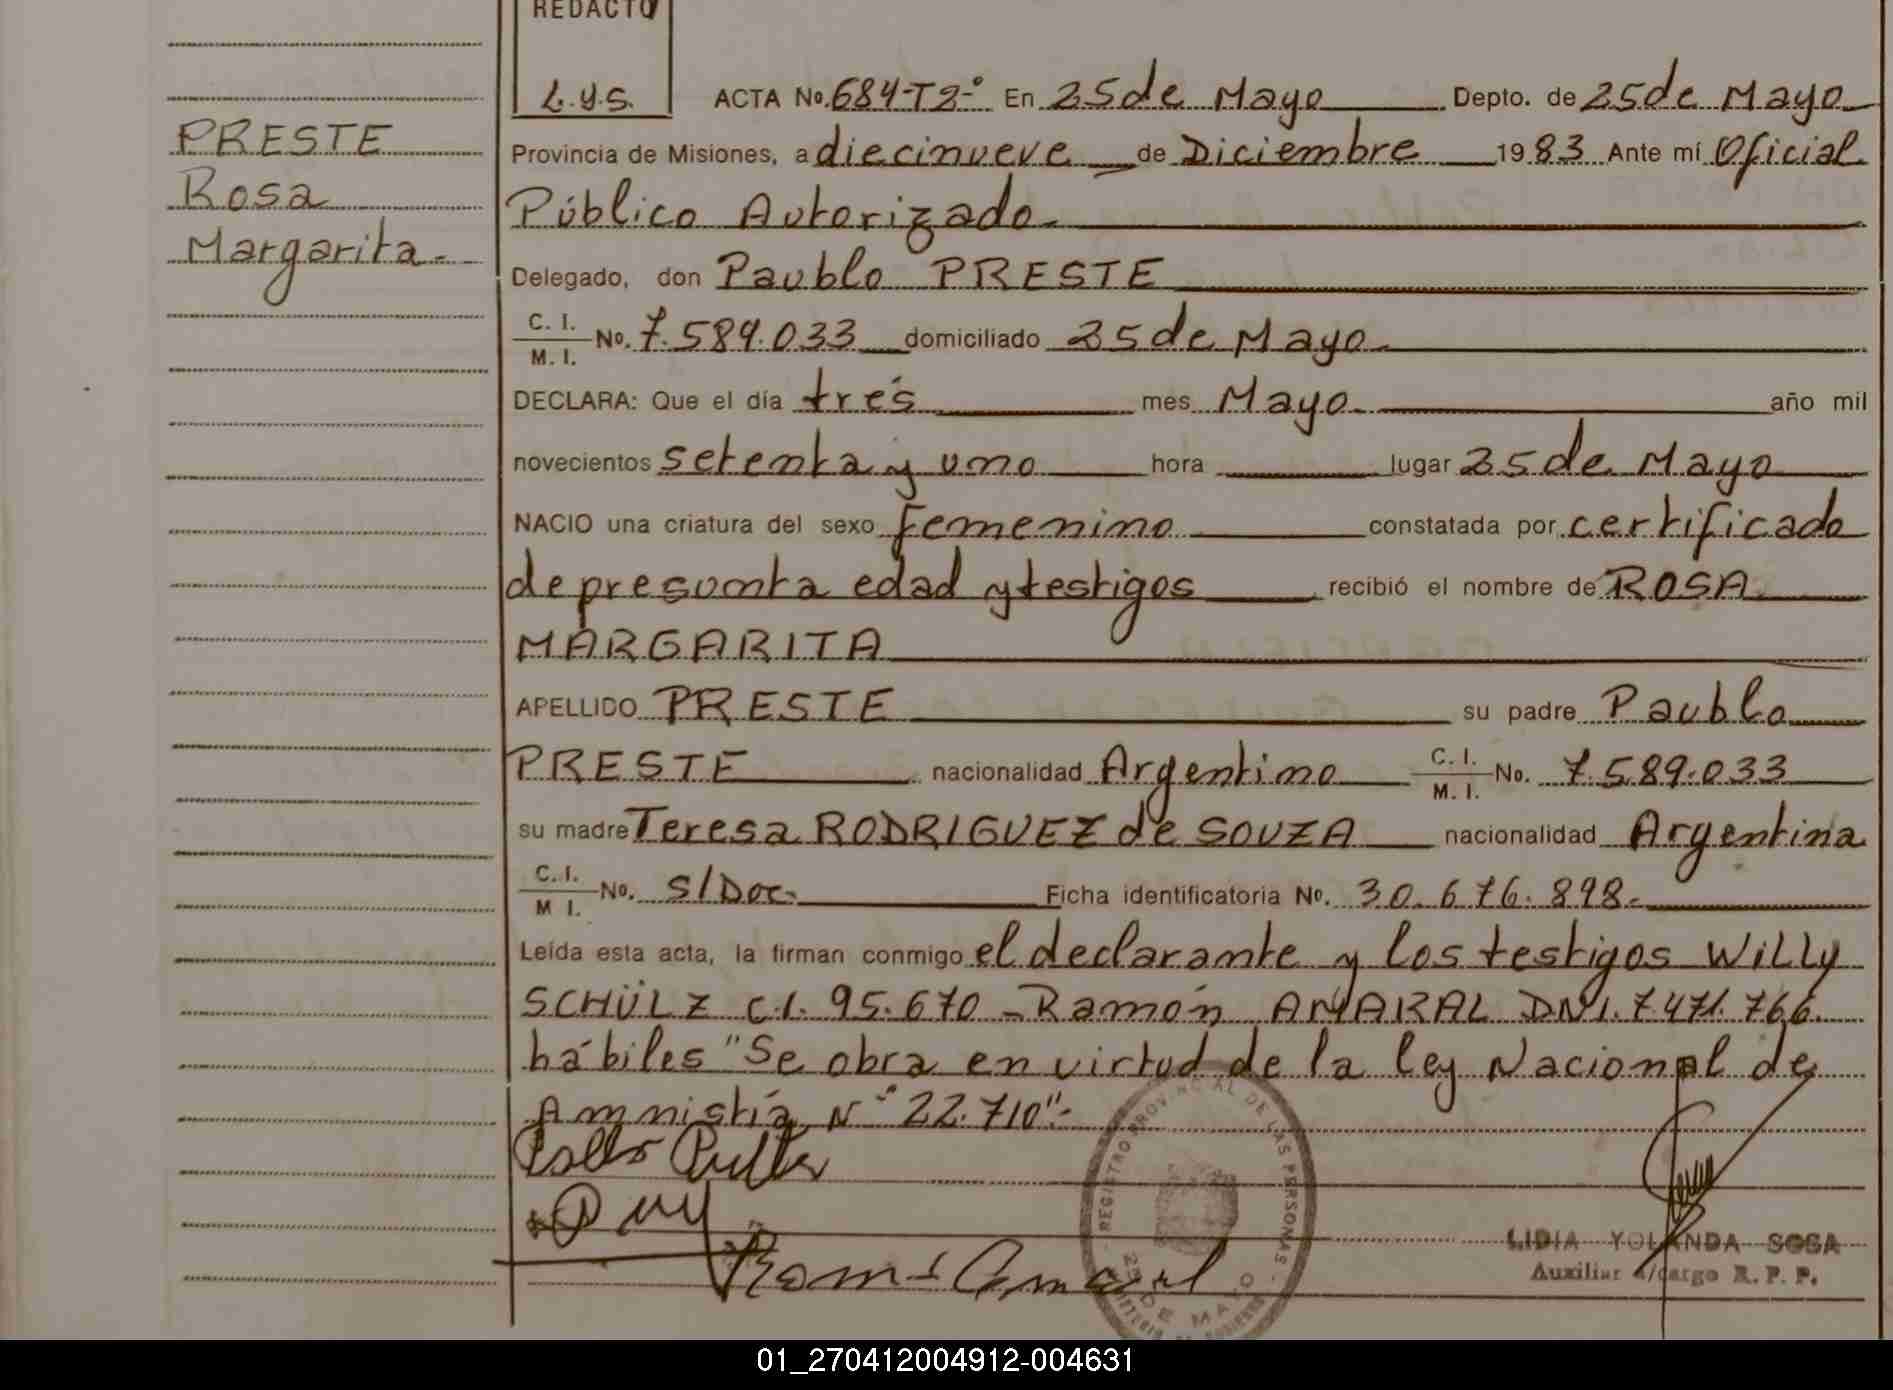 REDACTO
L.y.S.
ACTA No. 684-T2-° En 25 de Mayo Depto. de 25 de Mayo
PRESTE
Rosa
Margarita.-
Provincia de Misiones, a diecinueve de Diciembre 1983 Ante mí Oficial
Público Autorizado.
Delegado, don Paublo PRESTE
C. I.
M. I. No. 7.589.033 domiciliado 25 de Mayo.
DECLARA: Que el día trés mes Mayo. año mil
novecientos setenta y uno hora lugar 25 de Mayo
NACIO una criatura del sexo femenino constatada por certificado
de presunta edad y testigos recibió el nombre de ROSA
MARGARITA
APELLIDO PRESTE su padre Paublo
PRESTE nacionalidad Argentino C. I.
M. I. No. 7.589.033
su madre Teresa RODRIGUEZ de SOUZA nacionalidad Argentina
C. I.
M I. No. S/Doc. Ficha identificatoria No. 30.676.898.
Leída esta acta, la firman conmigo el declarante y los testigos Willy
SCHÜLZ C.I. 95.670 - Ramón AMARAL DNI. 7.471.766
hábiles "Se obra en virtud de la ley Nacional de
Amnistía N° 22.710".-
REGISTRO PROVINCIAL DE LAS PERSONAS
25 DE MAYO
LIDIA YOLANDA SOSA
Auxiliar a/cargo R. P. P.
01_270412004912-004631